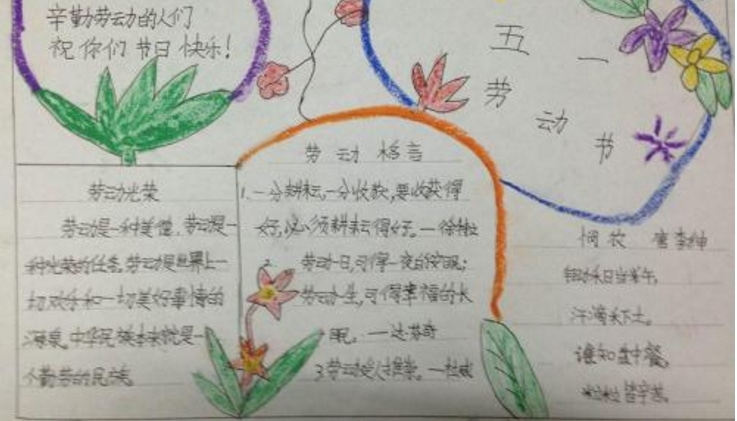 辛勤劳动的人们
祝你们节日快乐!
五一
劳动节
劳动光荣
劳动是一种美德,劳动是一
种光荣的任务,劳动是世界上一
切欢乐和一切美好事情的
源泉。中华民族本来就是一
个勤劳的民族。
劳动格言
1.一分耕耘,一分收获,要收获得
好,必须耕耘得好。—徐特立
2.劳动一日,可得一夜的安眠;
劳动一生,可得幸福的长
眠。—达芬奇
3劳动受人推崇。—杜威
悯农 唐李绅
锄禾日当午,
汗滴禾下土。
谁知盘中餐,
粒粒皆辛苦。